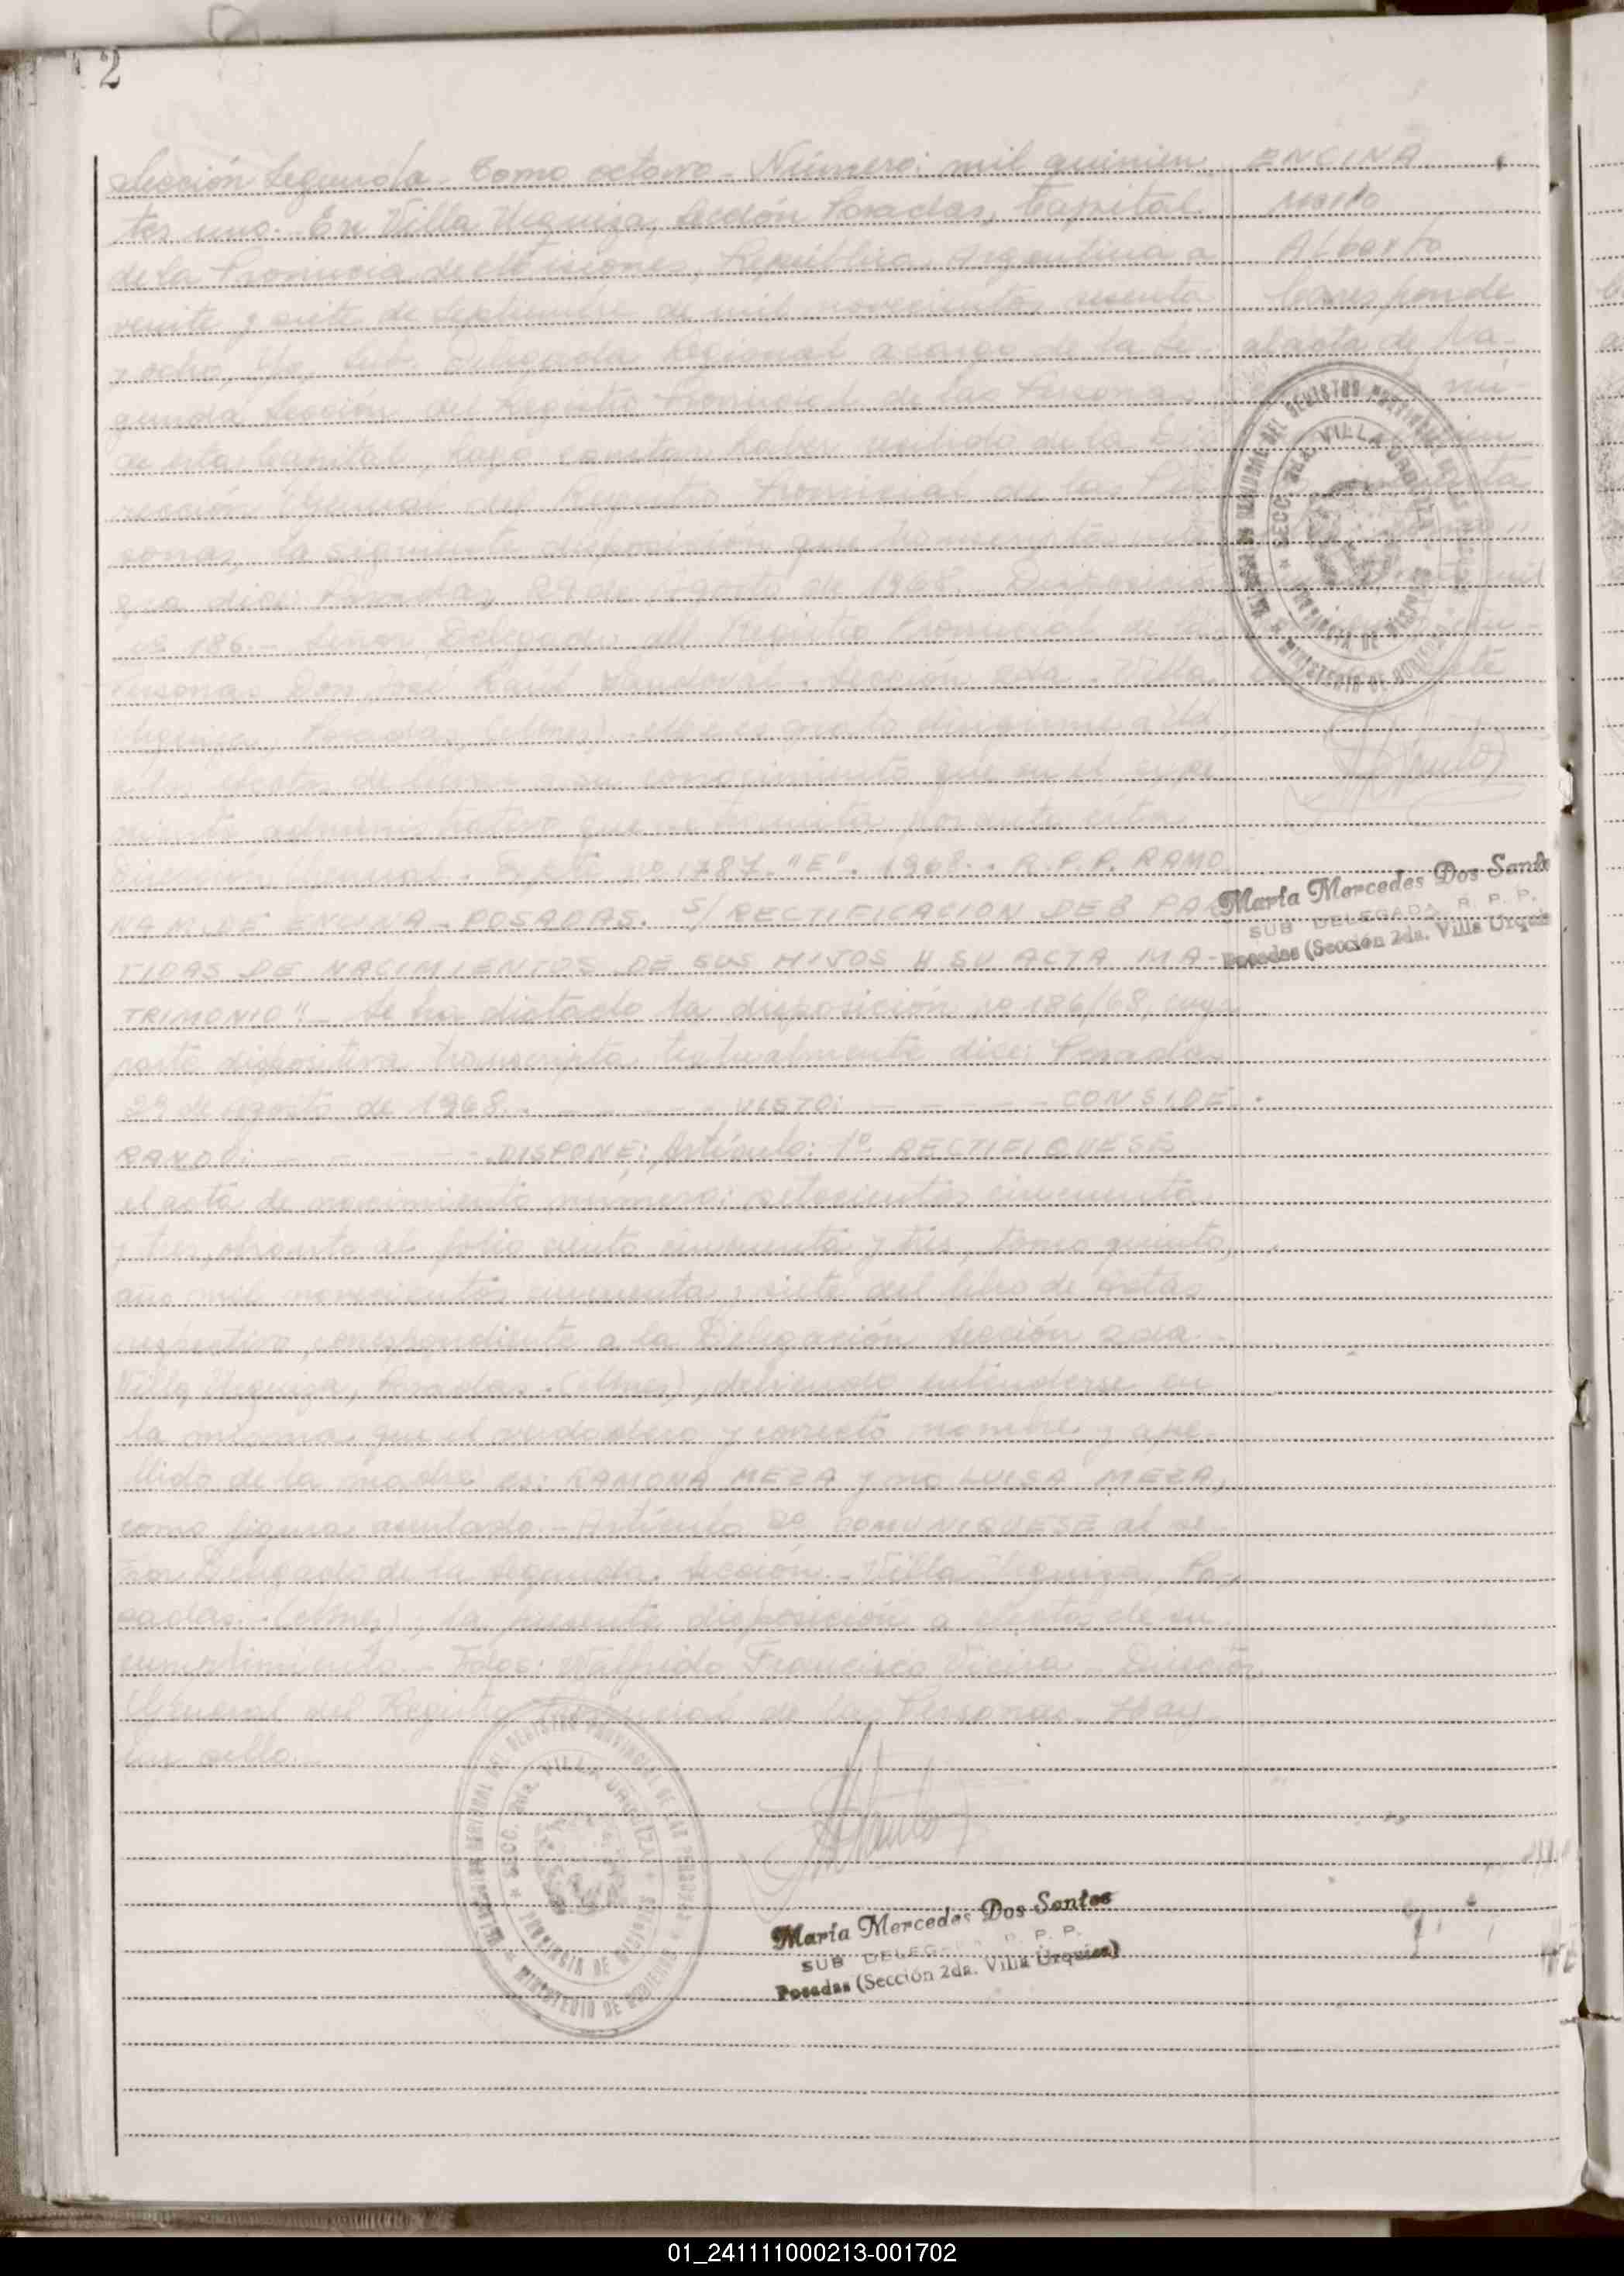 2
Sección Segunda. Tomo octavo. Número: mil quinien
tos uno. En Villa Urquiza, Sección Posadas, Capital
de la Provincia de Misiones, República Argentina a
veinte y siete de Septiembre de mil novecientos sesenta
y ocho, Yo, Sub. Delegada Regional a cargo de la Se-
gunda Sección del Registro Provincial de las Personas
de esta Capital, hago constar haber recibido de la Di
rección General del Registro Provincial de las Per
sonas, la siguiente disposición que transcripta
dice: Posadas, 29 de Agosto de 1968. Disposición
nº 186.- Señor Delegado del Registro Provincial de las
Personas Don José Raúl Sandoval. Sección 2da. Villa
Urquiza, Posadas, (Mnes). Me es grato dirigirme a Ud.
a los efectos de llevar a su conocimiento que en el expe
diente administrativo que se tramita por ante esta
Dirección General. Expte nº 1787. "E". 1968.. R.P.P. RAMO
NA M. DE ENCINA - POSADAS. S/ RECTIFICACION DE 8 PAR
TIDAS DE NACIMIENTOS DE SUS HIJOS Y SU ACTA MA-
TRIMONIO". Se ha dictado la disposición nº 186/68, cuya
parte dispositiva transcripta textualmente dice: Posadas
29 de Agosto de 1968. - - - - - VISTO: - - - - - CONSIDE
RANDO: - - - - - DISPONE: Artículo: 1º RECTIFIQUESE
el acta de nacimiento número: setecientos cincuenta
y tres, obrante al folio ciento cincuenta y tres, tomo quinto,
año mil novecientos cincuenta y siete del libro de Actas
respectivo, correspondiente a la Delegación Sección 2da.
Villa Urquiza, Posadas. (Mnes), debiendo entenderse en
la misma que el verdadero y correcto nombre y ape-
llido de la madre es: RAMONA MEZA y no LUISA MEZA,
como figura asentado. - Artículo 2º COMUNIQUESE al se
ñor Delegado de la Segunda Sección. Villa Urquiza, Po-
sadas. (Mnes), la presente disposición a efectos de su
cumplimiento. - Fdos: Walfrido Francisco Vieira - Director
General del Registro Provincial de las Personas. Hay
un sello.
ENCINA
Mario
Alberto
Corresponde
al acta de Na-
SECC. 2da. VILLA URQUIZA
PROVINCIA DE MISIONES
MINISTERIO DE GOBIERNO
María Mercedes Dos Santo
SUB DELEGADA R. P. P.
Posadas (Sección 2da. Villa Urquiz
DEL REGISTRO PROVINCIAL DE LAS PERSONAS
SECC. 2da. VILLA URQUIZA
PROVINCIA DE MISIONES
MINISTERIO DE GOBIERNO
María Mercedes Dos Santos
SUB DELEGADA R. P. P.
Posadas (Sección 2da. Villa Urquiza)
01_241111000213-001702